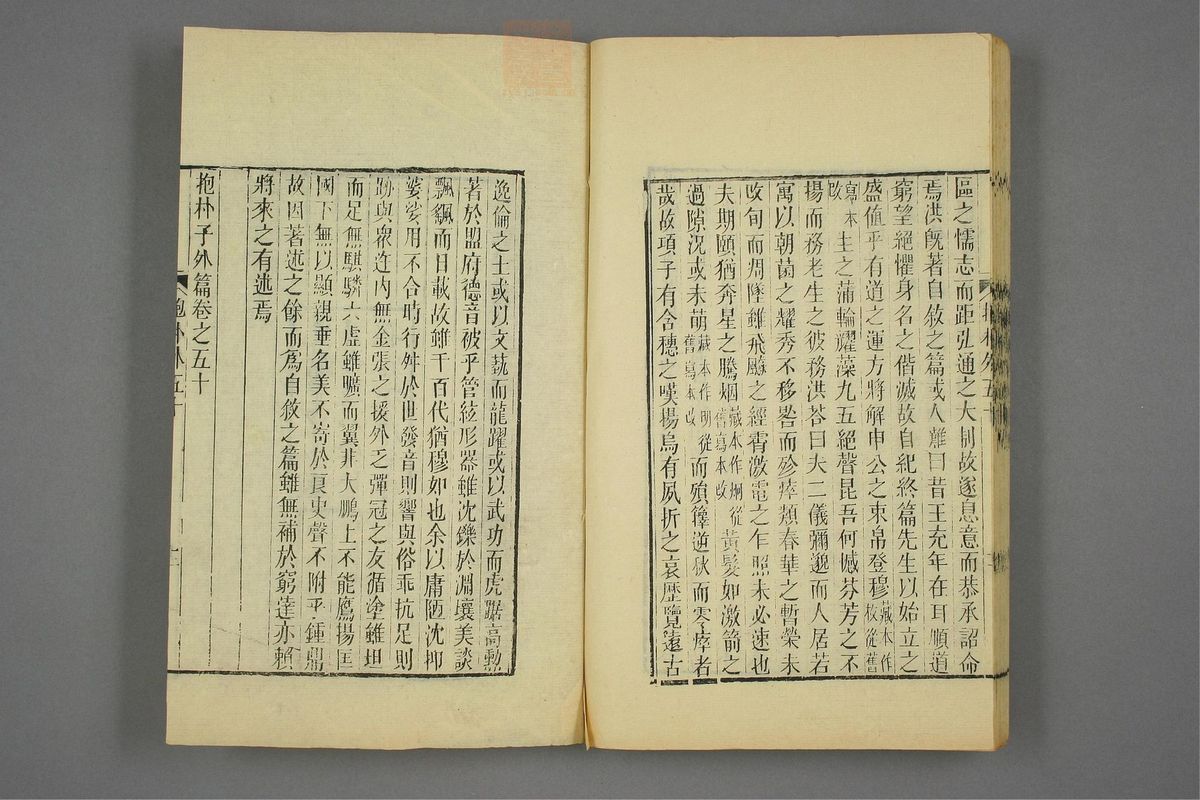 區之懦志而距弘通之大制故遂息意而恭承詔命
焉洪旣著自敘之篇或人難曰昔王充年在耳順道
窮望絕懼身名之偕滅故自紀終篇先生以始立之
盛値乎有道之運方將解申公之束帛登穆藏本作枚從舊
寫本改生之蒲輪耀藻九五絕聲昆吾何憾芬芳之不
揚而務老生之彼務洪答曰夫二儀彌邈而人居若
寓以朝菌之耀秀不移晷而殄瘁類春華之暫榮未
改旬而凋墜雖飛飇之經霄激電之乍照未必速也
夫期頤猶奔星之騰烟藏本作炯從舊寫本改黃髮如激箭之
過隙況或未萌藏本作明從舊寫本改而殞籜逆秋而零瘁者
哉故項子有含穗之嘆揚烏有夙折之哀歷覽遠古
逸倫之士或以文藝而龍躍或以武功而虎踞高勳
著於盟府德音被乎管絃形器雖沈鑠於淵壤美談
飄颻而日載故雖千百代猶穆如也余以庸陋沈抑
婆娑用不合時行舛於世發音則響與俗乖抗足則
跡與衆迕內無金張之援外乏彈冠之友循塗雖坦
而足無騏驎六虛雖曠而翼非大鵬上不能鷹揚匡
國下無以顯親垂名美不寄於良史聲不附乎鍾鼎
故因著述之餘而爲自敘之篇雖無補於窮達亦賴
將來之有述焉
抱朴子外篇卷之五十